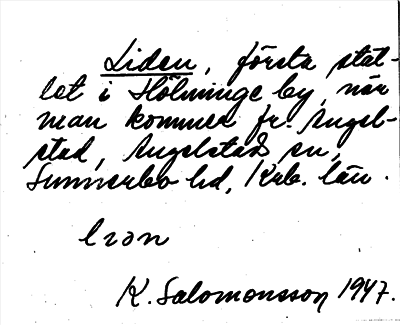 Liden, första stäl-
let i Hölminge by, när
man kommer fr. Angel-
stad, Angelstads sn,
Sunnerbo hd, Krb. län.
K. Salomonsson 1947.